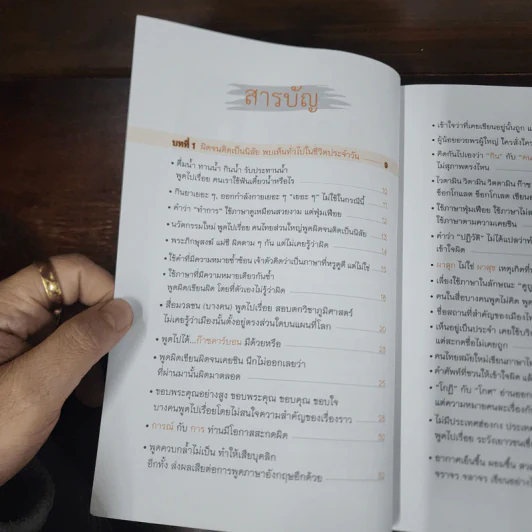 สารบัญ
บทที่ 1 ผิดจนติดเป็นนิสัย พบเห็นทั่วไปในชีวิตประจำวัน 9
• ดื่มน้ำ ทานน้ำ กินน้ำ รับประทานน้ำ
พูดไปเรื่อย คนเราใช้ฟันเคี้ยวน้ำหรือไร 10
• กินอาเยอะ ๆ, ออกกำลังกายเยอะ ๆ "เยอะ ๆ" ไม่ใช้ในกรณีนี้ 11
• คำว่า "ทำการ" ใช้ภาษาดูเหมือนสวยงาม แต่ฟุ่มเฟือย 12
• นวัตกรรมใหม่ พูดไปเรื่อย คนไทยส่วนใหญ่พูดผิดจนติดเป็นนิสัย 13
• พระภิกษุสงฆ์ แม่ชี ผิดตาม ๆ กัน แต่ไม่เคยรู้ว่าผิด 14
• ใช้คำที่มีความหมายซ้ำซ้อน เจ้าตัวคิดว่าเป็นภาษาที่หรูดูดี แต่ไม่ใช่ 15
• ใช้ภาษาที่มีความหมายเดียวกันซ้ำ
พูดผิดเขียนผิด โดยที่ตัวเองไม่รู้ว่าผิด 16
• สื่อมวลชน (บางคน) พูดไปเรื่อย สอบตกวิชาภูมิศาสตร์
ไม่เคยรู้ว่าเมืองนั้นตั้งอยู่ตรงส่วนใดบนแผนที่โลก 20
• พูดไปได้...ก๊าซคาร์บอน มีด้วยหรือ 23
• พูดผิดเขียนผิดจนเคยชิน นึกไม่ออกเลยว่า
ที่ผ่านมานั้นผิดมาตลอด 25
• ขอบพระคุณอย่างสูง ขอบพระคุณ ขอบคุณ ขอบใจ
บางคนพูดไปเรื่อยโดยไม่สนใจความสำคัญของเรื่องราว 28
• การณ์ กับ การ ท่านมีโอกาสสะกดผิด 30
• พูดควบกล้ำไม่เป็น ทำให้เสียบุคลิก
อีกทั้ง ส่งผลเสียต่อการพูดภาษาอังกฤษอีกด้วย 32
• เข้าใจว่าที่เคยเขียนอยู่นั้นถูก
• ผู้น้อยอวยพรผู้ใหญ่ ใครสั่ง
• คิดกันไปเองว่า "กิน" กับ
ไม่สุภาพตรงไหน
• ไวตามิน วิตามิน วิตมิน ก๊าซ
ช็อกโกแลต ช็อกโกเลต
• ใช้ภาษาฟุ่มเฟือย ใช้ภาษาไม่
ใช้ภาษาตามความเคยชิน
• คำว่า "ปฏิวัติ" ไม่ได้แปลว่า
เข้าใจผิด
• ผาสุก ไม่ใช่ ผาสุข เหตุเกิดที่
• เลี่ยงใช้ภาษาในลักษณะ
• คนในสื่อบางคนพูดไม่คิด
• ชื่อสถานที่สำคัญของเมืองไทย
• เห็นอยู่เป็นประจำ เคยใช้บริ
แต่สะกดชื่อไม่เคยถูก
• คนไทยสมัยใหม่เขียนภาษา
• คำศัพท์ที่ชวนให้เข้าใจผิด
• "โกฏิ" กับ "โกศ" อ่านออก
แต่ความหมายคนละเรื่อง
• ไม่มีประเทศฮ่องกง
พูดไปเรื่อย ระวังเยาวชน
• อากาศเย็นขึ้น ผอมขึ้น
จราจร จลาจร เขียนอย่าง